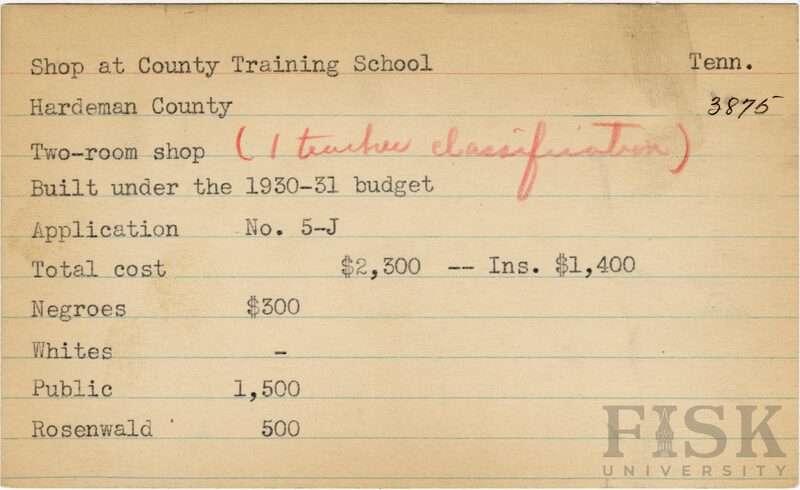 Shop at County Training School Tenn.
Hardeman County 3875
Two-room shop (1 teacher classification)
Built under the 1930-31 budget
Application No. 5-J
Total cost $2,300 -- Ins. $1,400
Negroes $300
Whites -
Public 1,500
Rosenwald 500
FISK
UNIVERSITY